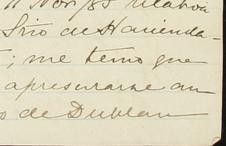 11 Nov/85 relativa
Srio de Hacienda-
; me temo que
apresurarse an
o de Dublan